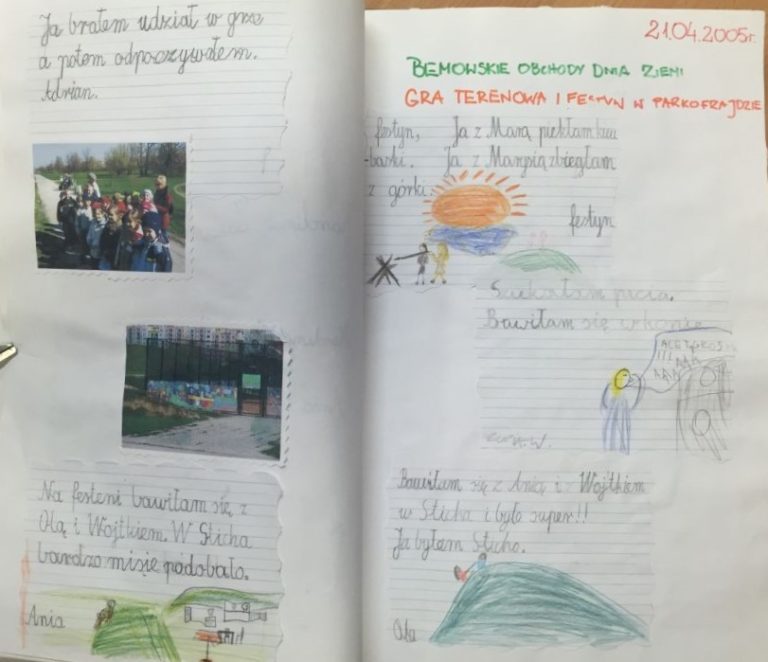 Ja brałem udział w grze
a potem odpoczywałem.
Adrian.
Na festeni bawiłam się z
Olą i Wojtkiem. W Sticha
bardzo misię podobało.
Ania
21.04.2005r.
BEMOWSKIE OBCHODY DNIA ZIEMI
GRA TERENOWA I FESTYN W PARKOFRAJDZIE
festyn, Ja z Marą piekłam
-baski. Ja z Marysią zbiegłam
z górki.
festyn
Szukałam
Bawiłam się w
Bawiłam się z Anią i z Wojtkiem
w Sticha i było super!!
Ja byłam Sticho.
Ola